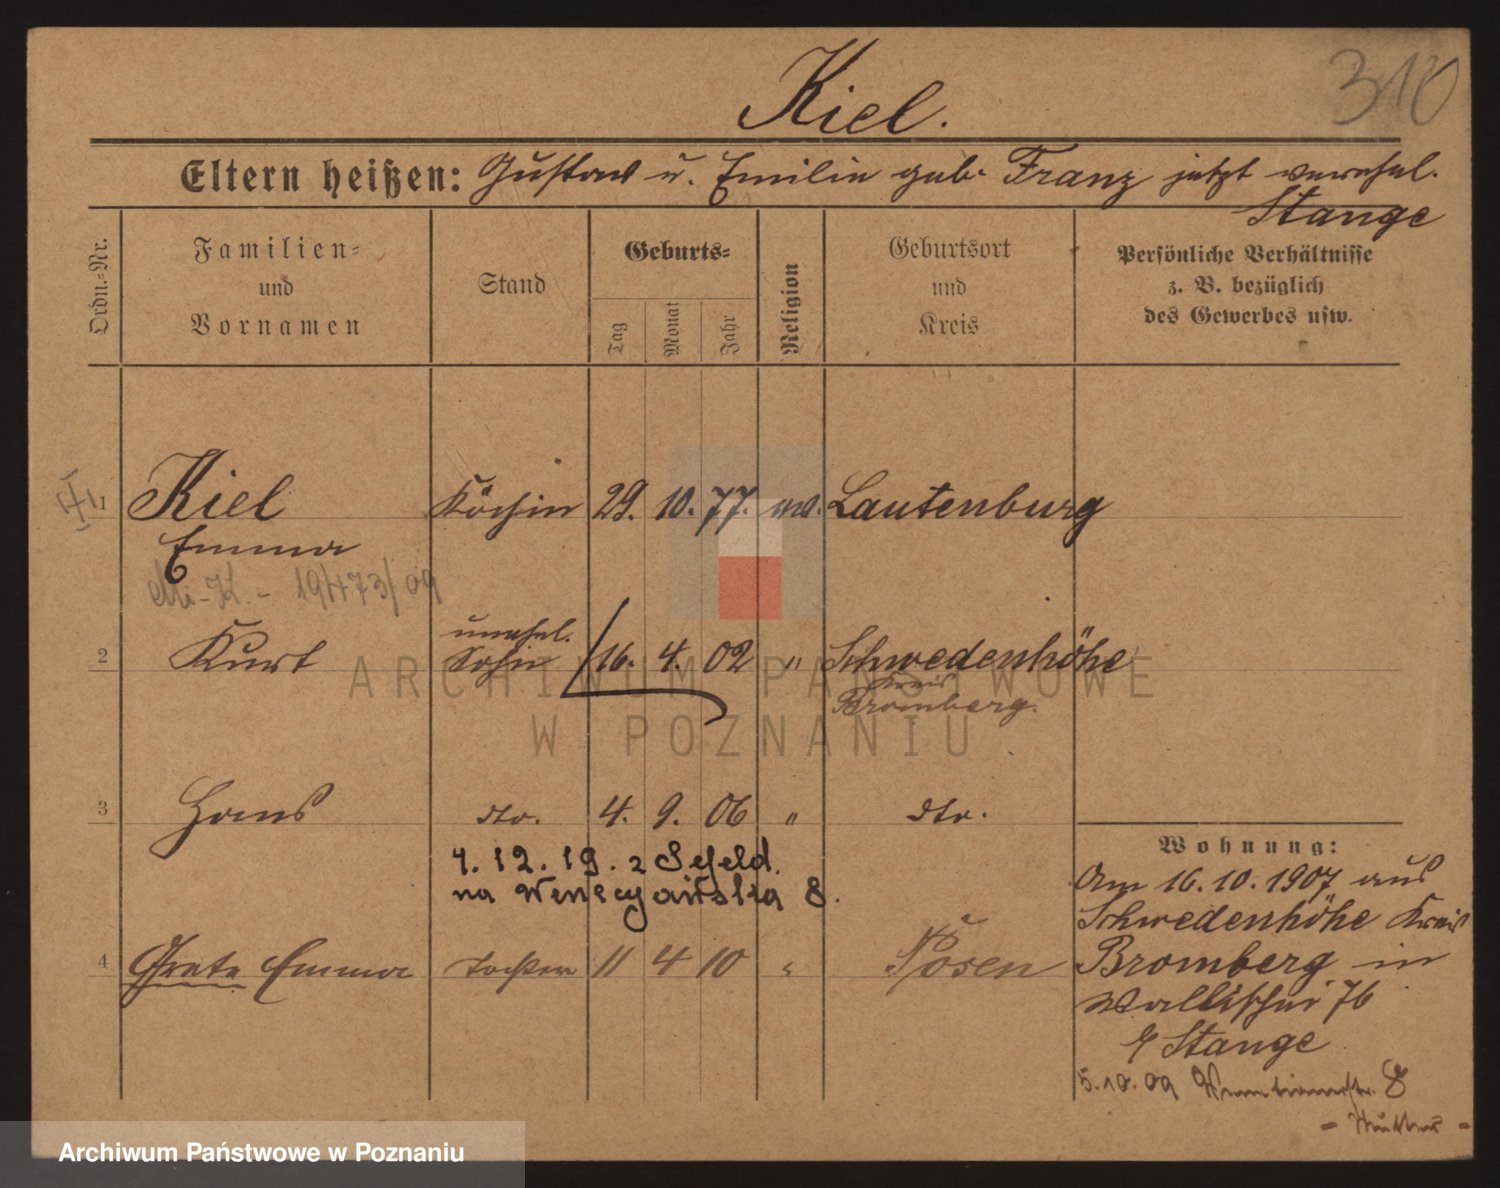 Kiel.
310
Eltern heißen: Gustav u. Emilie geb. Franz jetzt verehel.
Stange
Ordn.-Nr.
Familien-
und
Vornamen
Stand
Geburts-
Tag
Monat
Jahr
Religion
Geburtsort
und
Kreis
Persönliche Verhältnisse
z. B. bezüglich
des Gewerbes usw.
1 Kiel Köchin 29. 10. 77. ev. Lautenburg
Emma
19473/09
unehel.
2 Kurt Sohn 16. 4. 02 " Schwedenhöhe
Kreis
Bromberg.
3 Hans dto. 4. 9. 06 " dto.
4.12.19. z Sefeld.
na Wenecyańska 8.
4 Grete Emma Tochter 11 4 10 " Posen
Wohnung:
Am 16.10.1907 aus
Schwedenhöhe Kreis
Bromberg in
Wallischei 76
b/ Stange
5.10.09 Venetianerstr. 8
- Mutter -
ARCHIWUM PAŃSTWOWE
W POZNANIU
Archiwum Państwowe w Poznaniu